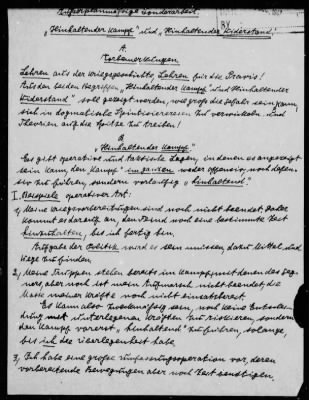 Außerplanmäßige Sonderarbeit
"Hinhaltender Kampf" und "Hinhaltender Widerstand"
A.
Vorbemerkungen.
Lehren aus der Kriegsgeschichte Lehren für die Praxis!
Aus den beiden Begriffen "Hinhaltender Kampf und Hinhaltender
Widerstand" soll gezeigt werden, wie groß die Gefahr sein kann,
sich in dogmatische Spintisierereien zu verwickeln und
Theorien auf die Spitze zu treiben!
B.
"Hinhaltender Kampf."
Es gibt operative und taktische Lagen, in denen es angezeigt
sein kann, den Kampf im ganzen weder offensiv, noch defen-
siv zu führen, sondern vorläufig "hinhaltend."
I. Beispiele operativer Art:
1, Meine Kriegsvorbereitungen sind noch nicht beendet. Daher
kommt es darauf an, den Feind noch eine bestimmte Zeit
hinzuhalten, bis ich fertig bin.
Aufgabe der Politik wird es sein müssen, dazu Mittel und
Wege zu finden.
2, Meine Truppen stehen bereits im Kampf mit denen des Geg-
ners, aber noch ist mein Aufmarsch nicht beendet, die
Masse meiner Kräfte noch nicht einsatzbereit.
Es kann also zweckmäßig sein, noch keine Entschei-
dung mit unterlegenen Kräften zu riskieren, sondern
den Kampf vorerst "hinhaltend" zu führen, solange,
bis ich die Überlegenheit habe.
3, Ich habe eine große Umfassungsoperation vor, deren
vorbereitende Bewegungen aber noch Zeit benötigen,